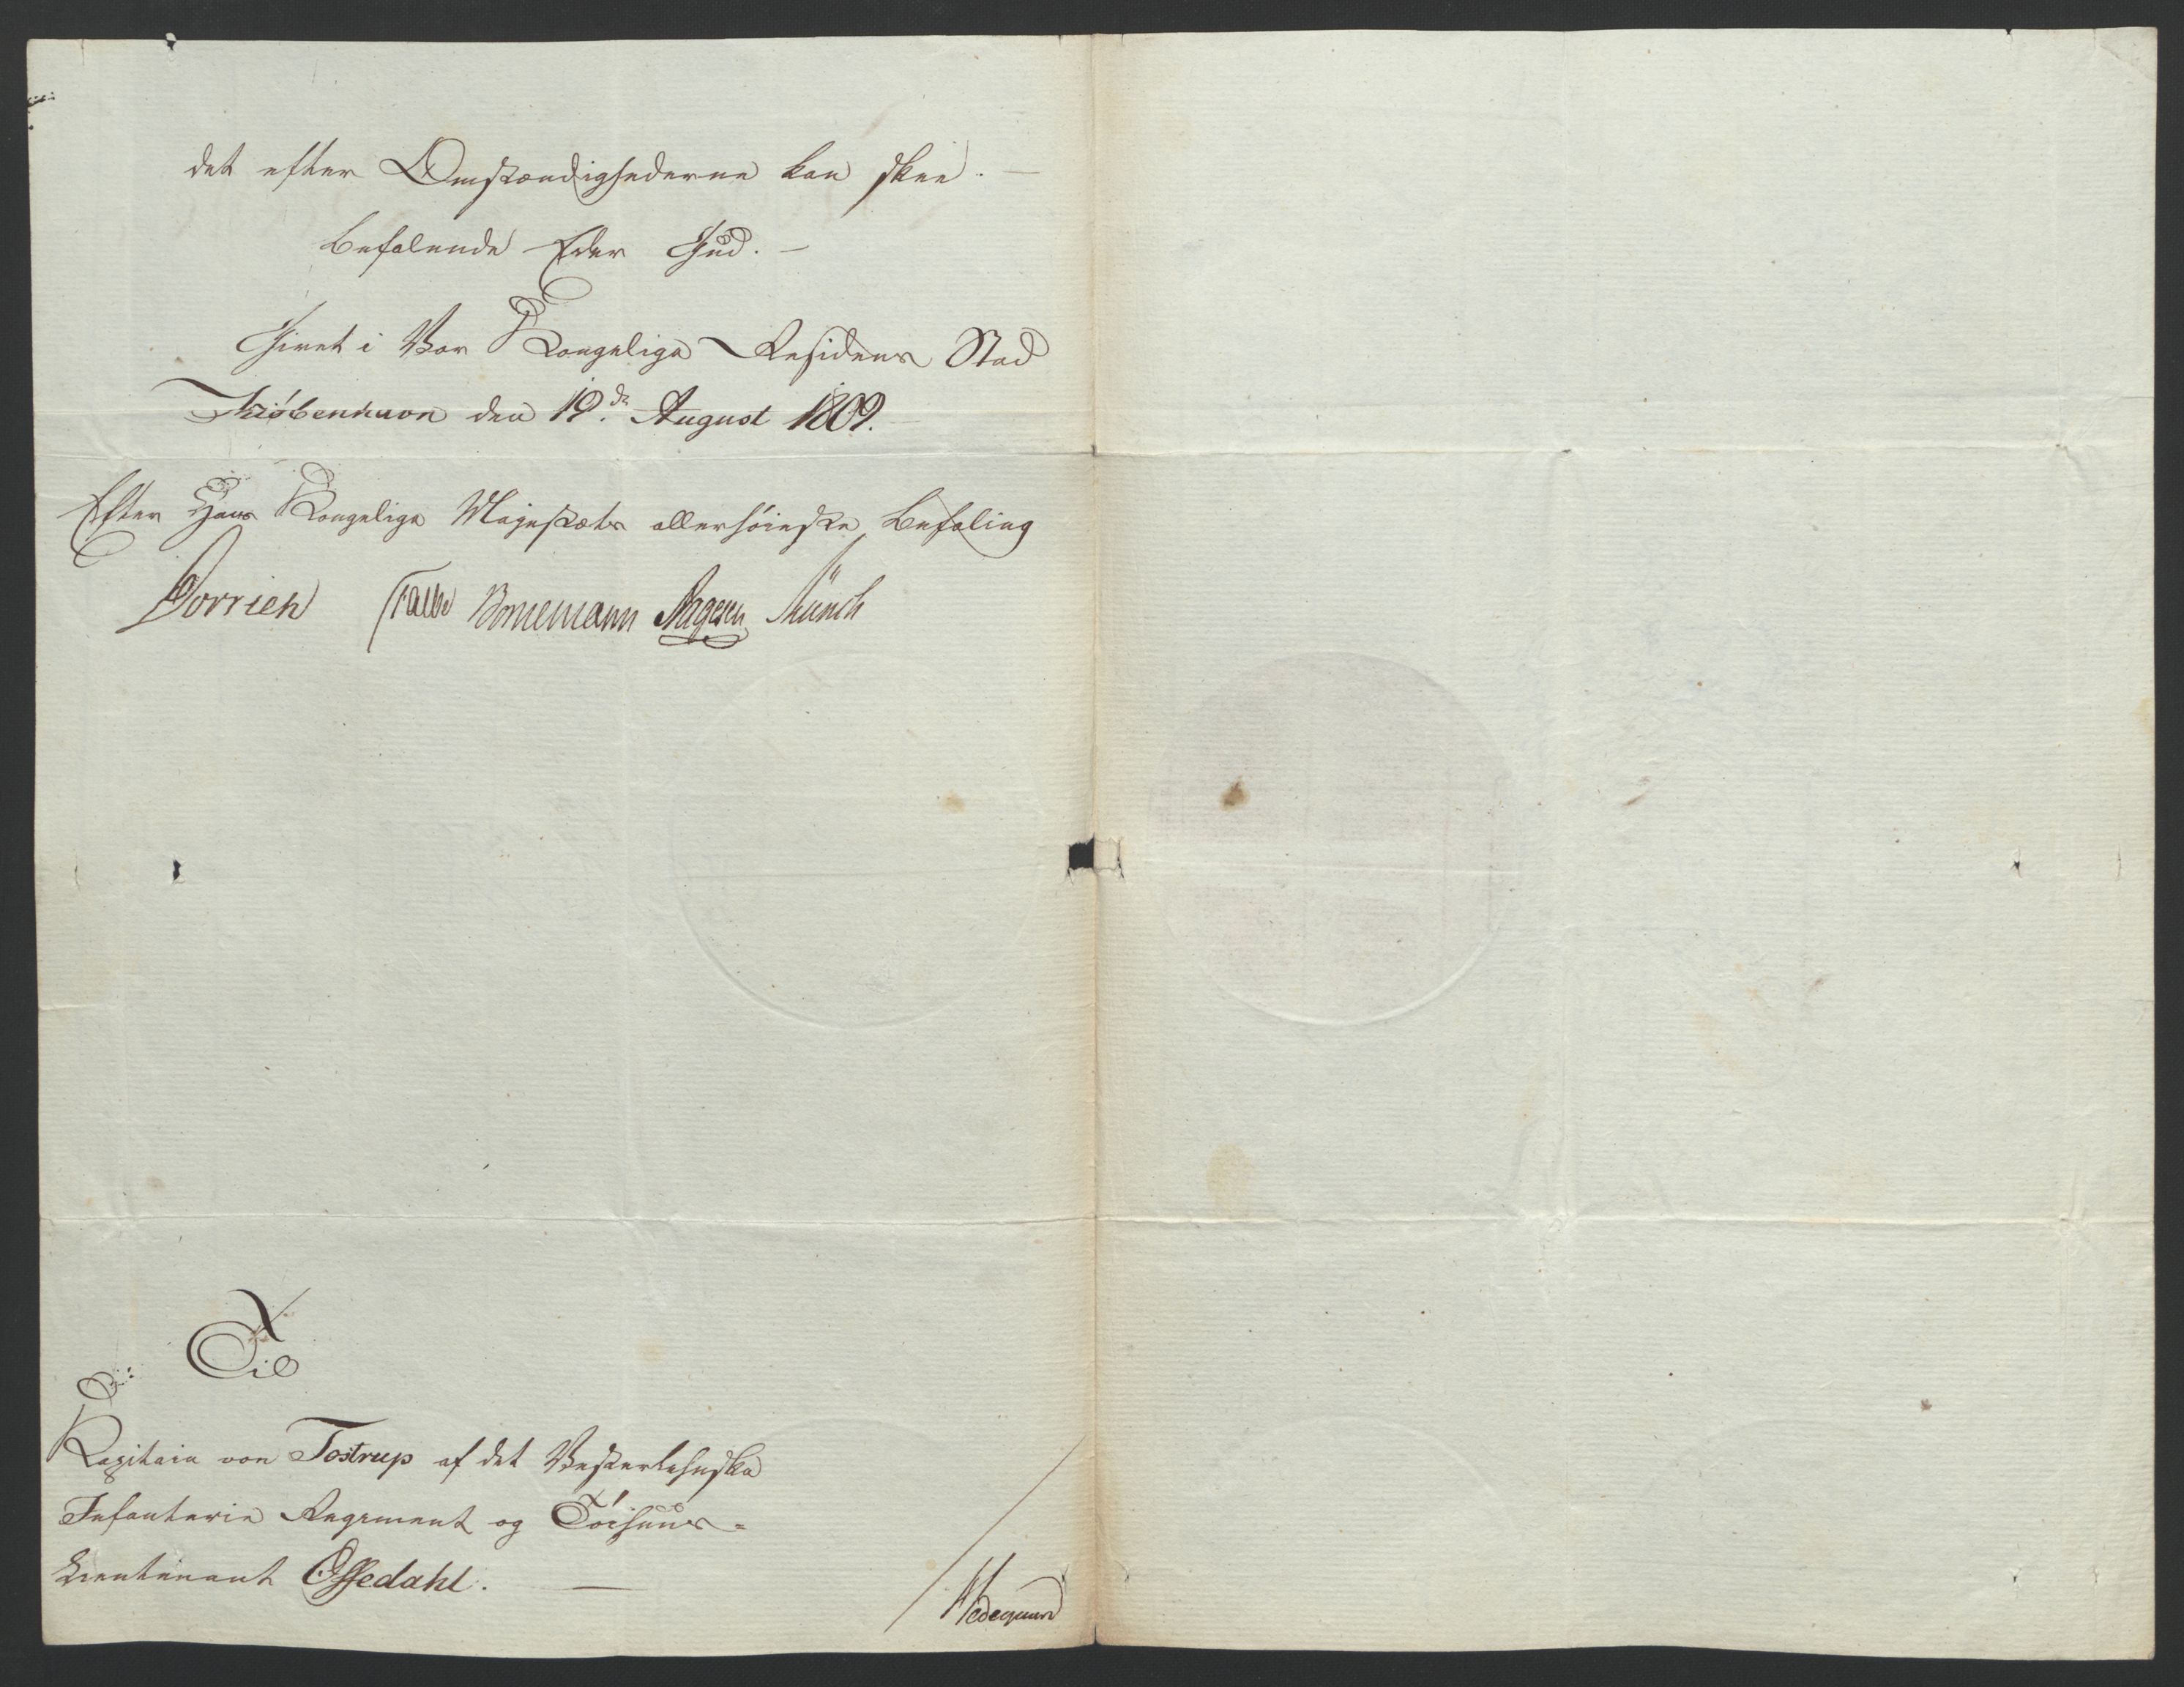 det efter Omstændighederne kan skee. —
Befalende Eder Gud. —
Givet i Vor Kongelige Residens Stad
Kiøbenhavn den 19de August 1809.
Efter Hans Kongelige Majestæts allerhöieste Befaling
Dorrien Falbe Bornemann Aagesen Münch
Til
Kapitain von Tostrup af det Vesterlehnske
Infanterie Regiment og Töihuus-
Lieutenant Essedahl. —
Wedegaard